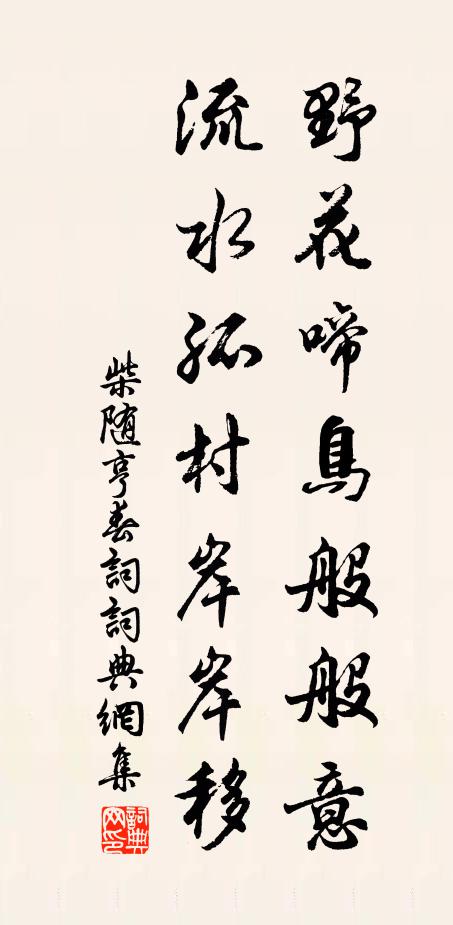 野花啼鳥般般意
流水孤村岸岸移
柴随亨春詞詞典網集
詞典網印